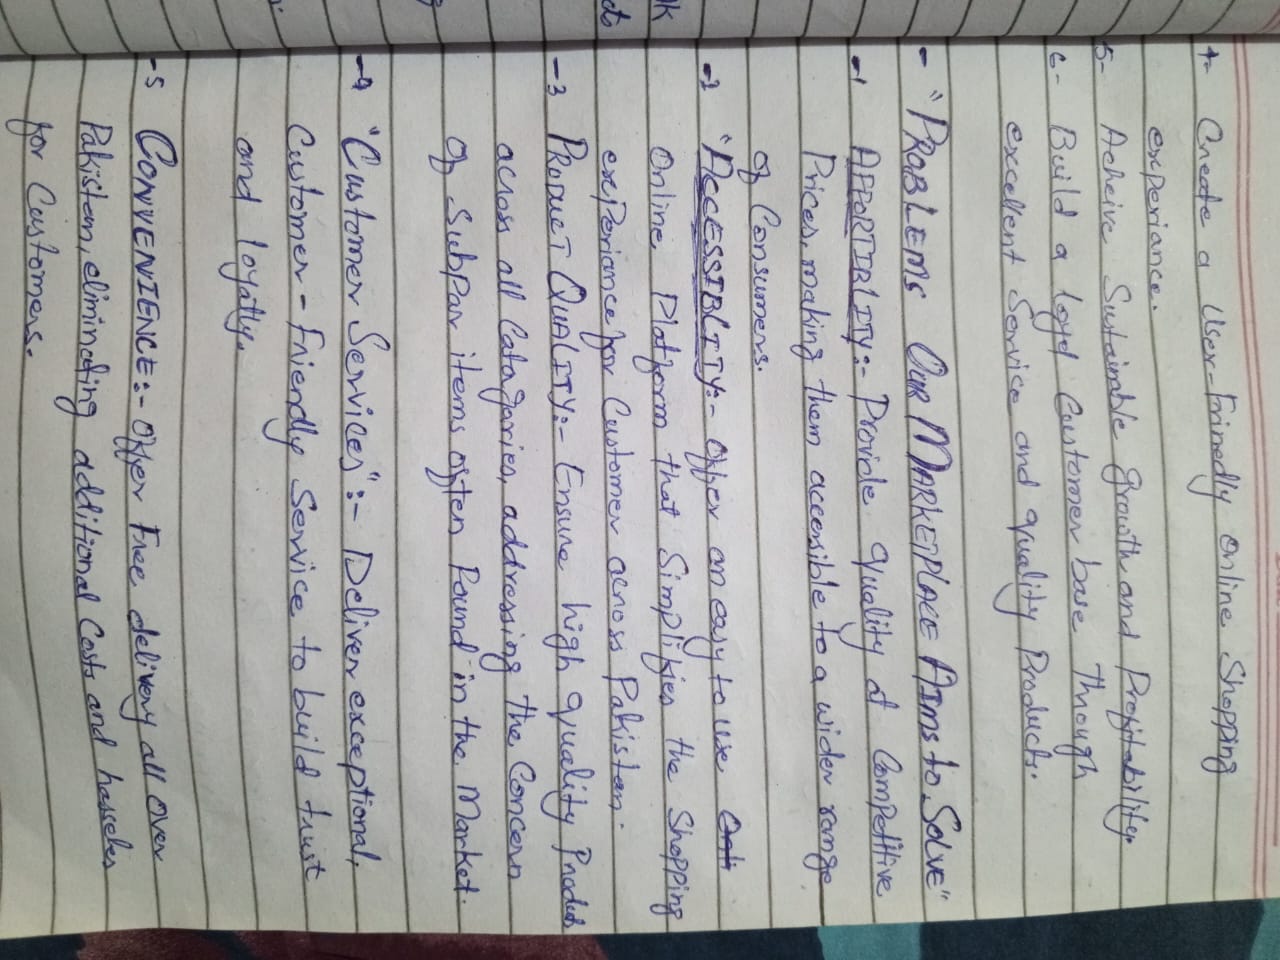 4- Create a User-Frinedly Online Shopping
experiance.
5- Acheive Sustainable growth and Profitability.
6- Build a loyel Customer base Through
excellent Service and quality Products.
- "PROBLEMS OUR MARKETPLACE AIMS to SOLVE"
-1 AFFORTIBLITY:- Provide quality at Competitive
Prices, making them accessible to a wider range
of Consumers.
-2 "ACCESSIBLITY:- Offer an easy to use
Online Platform that Simplifies the Shopping
experiance for Customer across Pakistan.
-3 PRODUCT QUALITY:- Ensure high quality Products
across all Catagories, addressing the Concern
of Subpar items often Found in the Market.
-4 "Customer Services":- Deliver exceptional,
Customer-Friendly Service to build trust
and loyatly.
-5 CONVENIENCE:- Offer Free delivery all over
Pakistan, eliminating additional Costs and hasseles
for Customers.